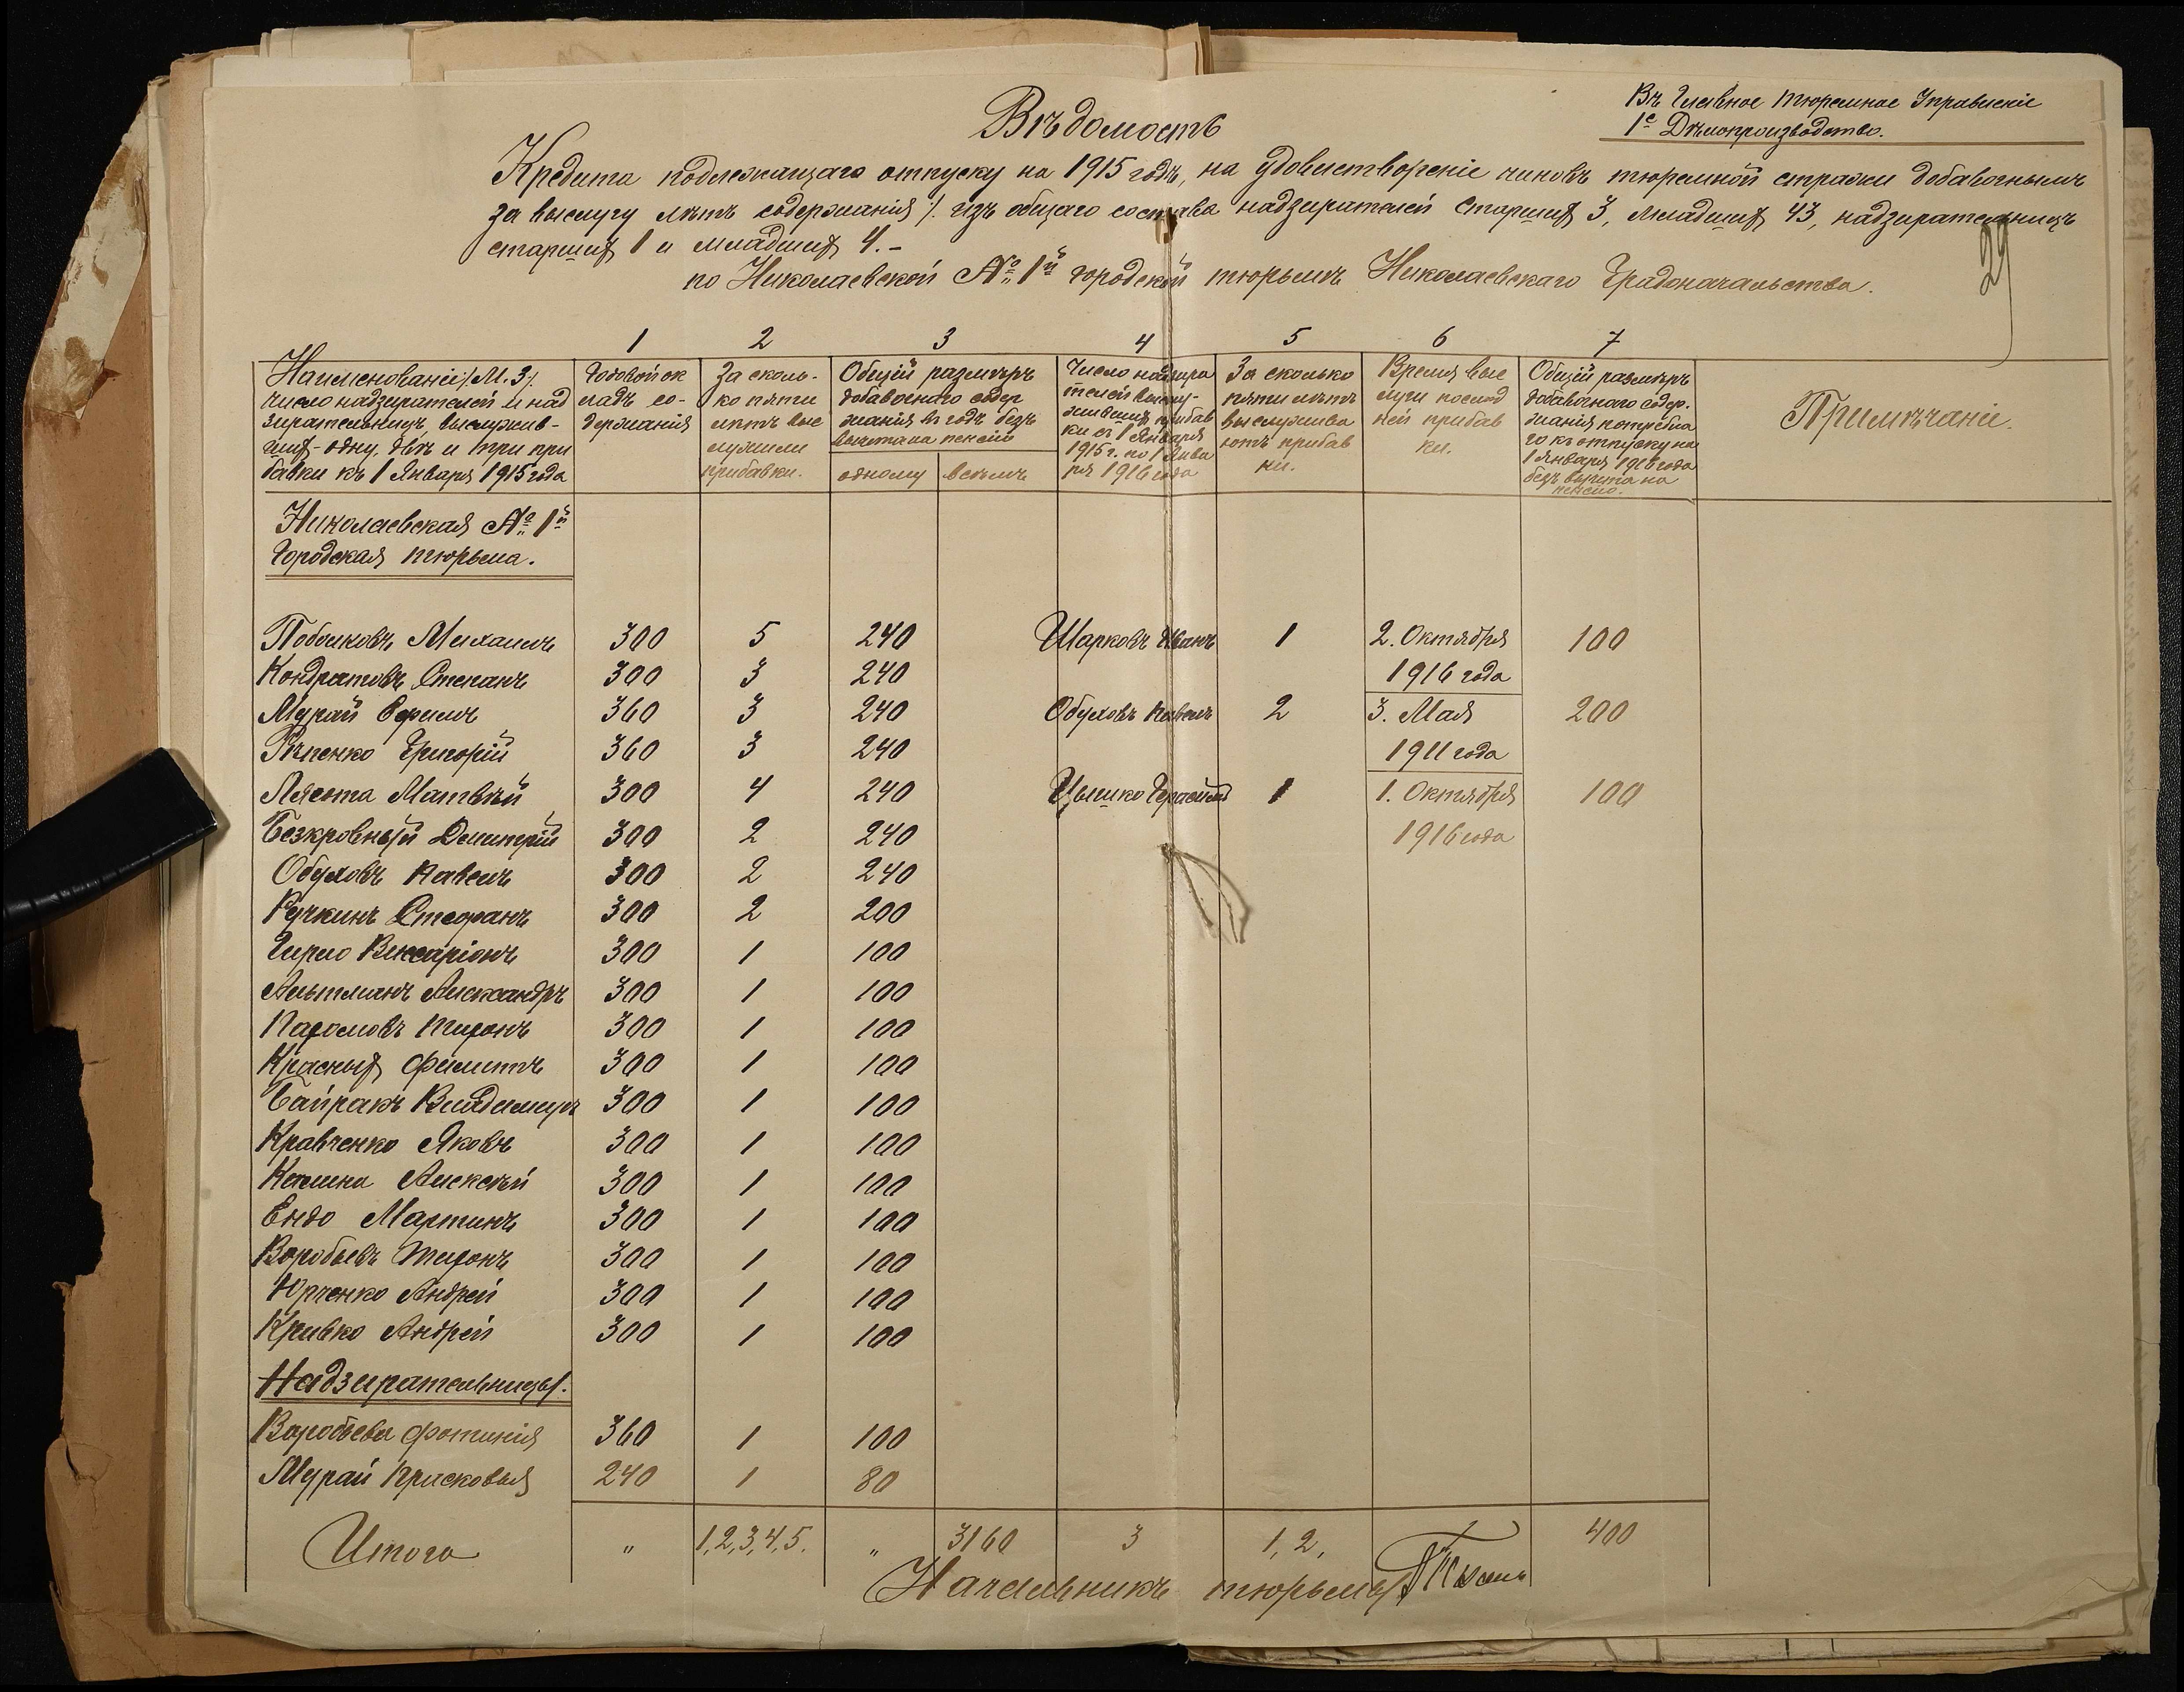 Въ Главное Тюремное Управленіе
1е Дѣлопроизводство.
Вѣдомость
Кредита подлежащаго отпуску на 1915 годъ, на удовлетвореніе чиновъ тюремной стражи добавочнымъ
за выслугу лѣтъ содержанія /. изъ общаго состава надзирателей Старшихъ 3, Младшихъ 43, надзирательницъ
старшихъ 1 и младшихъ 4.-
по Николаевской № 1й городской тюрьмѣ Николаевскаго Градоначальства.
29
1 2 3 4 5 6 7
Наименованіе /М.З/.
число надзирателей и над
зирательницъ, выслужив-
шихъ - одну, двѣ и три при
бавки къ 1 Января 1915 года
Годовой ок
ладъ со-
держанія
За сколь-
ко пяти
лѣтъ выс
лужили
прибавки.
Общій размѣръ
добавочнаго содер
жанія въ годъ безъ
вычета на пенсію
одному всѣмъ
Число надзира
телей выслу-
жившихъ прибав
ки съ 1 Января
1915 г. по 1 Янва
ря 1916 года
За сколько
пяти лѣтъ
выслужива
ютъ прибав
ки.
Время выс
луги послѣд
ней прибав
ки.
Общій размѣръ
добавочнаго содер-
жанія потребна
го къ отпуску на
1 Января 1916 года
безъ вычета на
пенсію.
Примѣчаніе.
Николаевская № 1й
Городская тюрьма.
Михаилъ 300 5 240 Шарковъ Иванъ 1 2. Октября 100
Кондратовъ Степанъ 300 3 240 1916 года
Мурай Ефимъ 360 3 240 Обуховъ Павелъ 2 3. Мая 200
Рѣпенко Григорій 360 3 240 1911 года
Лясота Матвѣй 300 4 240 Цышко Герасимъ 1 1. Октября 100
Безкровный Дмитрій 300 2 240 1916 года
Обуховъ Павелъ 300 2 240
Ручкинъ Стефанъ 300 2 200
Гирло Виссаріонъ 300 1 100
Альтманъ Александръ 300 1 100
Пафомовъ Тифонъ 300 1 100
Красныхъ Филиппъ 300 1 100
Байракъ Владимиръ 300 1 100
Кравченко Яковъ 300 1 100
Алексѣй 300 1 100
Ендо Мартинъ 300 1 100
Воробьевъ Тифонъ 300 1 100
Юрченко Андрей 300 1 100
Кривко Андрей 300 1 100
Надзирательницы.
Воробьева Фотинія 360 1 100
Мурай Прасковья 240 1 80
Итого " 1,2,3,4,5. " 3160 3 1,2, 400
Начальникъ тюрьмы